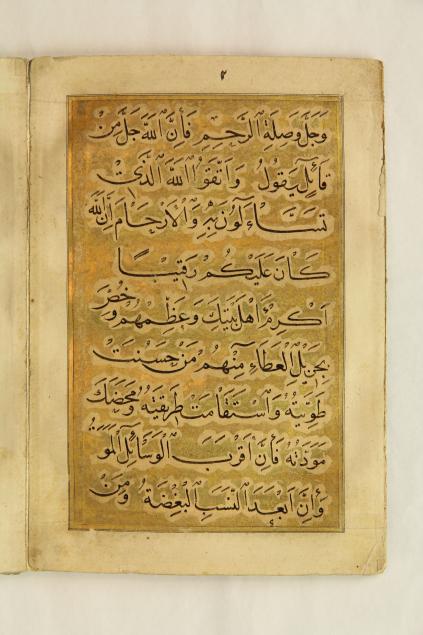 ٢
وَجَلَّ وَصِلَةِ الرَّحِمِ فَأِنَّ اللّٰهَ جَلَّ مِنْ
قَائِلٍ يَقُولُ وَاتَّقُوا اللّٰهَ الَّذِي
تَسَّاءَلُونَ بِهِ وَالْاَرْحَامَ اِنَّ اللّٰهَ
كَانَ عَلَيْكُمْ رَقِيبًا
اَكْرِمْ اَهْلَ بَيْتِكَ وَعَظِّمْهُمْ وَخُصَّ
بِجَزِيلِ الْعَطَاءِ مِنْهُمْ مَنْ حَسُنَتْ
طَوِيَّتُهُ وَاسْتَقَامَتْ طَرِيقَتُهُ وَمَحَضَكَ
مَوَدَّتَهُ فَأِنَّ اَقْرَبَ الْوَسَائِلِ الْمَوَ
وَأِنَّ اَبْعَدَ النَّسَبِ الْبِغْضَةُ وَمَنْ